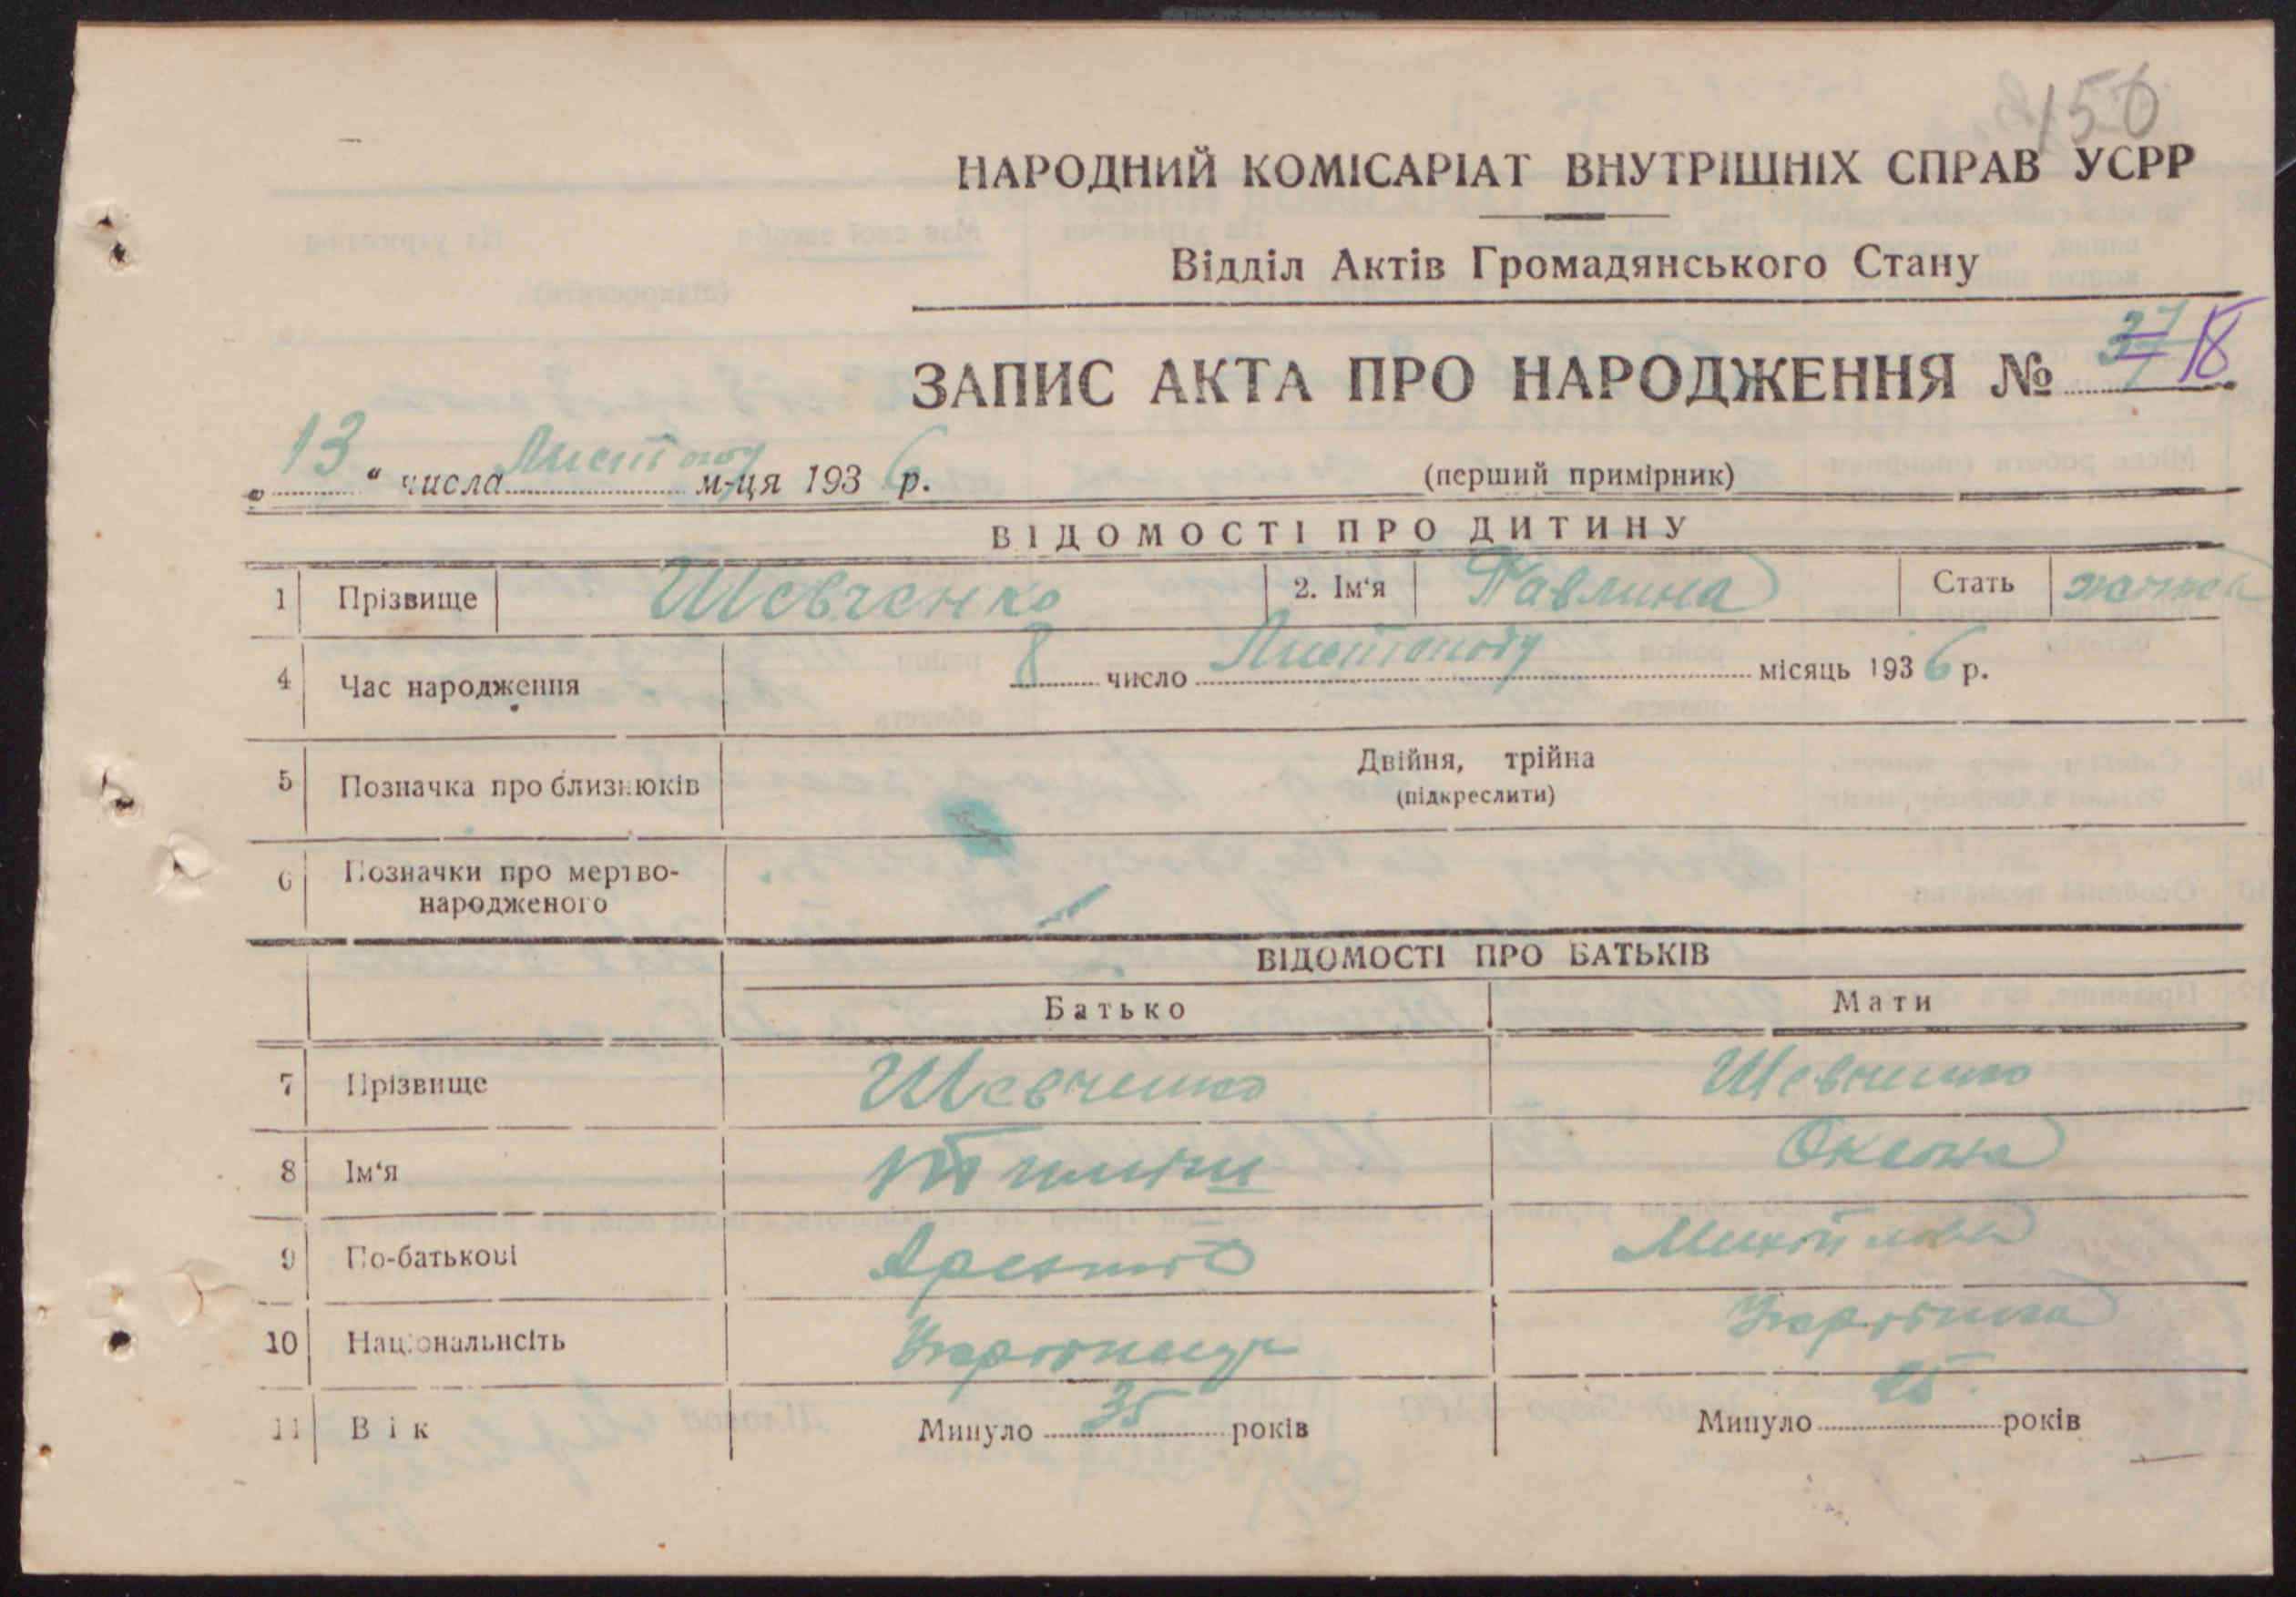 150
НАРОДНИЙ КОМІСАРІАТ ВНУТРІШНІХ СПРАВ УСРР
Відділ Актів Громадянського Стану
ЗАПИС АКТА ПРО НАРОДЖЕННЯ № 18
„13“ числа Листопаду м-ця 1936 р. (перший примірник)
ВІДОМОСТІ ПРО ДИТИНУ
1 Прізвище Шевченко 2. Ім‘я Павлина Стать жіноча
4 Час народження 8 число Листопаду місяць 1936 р.
5 Позначка про близнюків Двійня, трійна
(підкреслити)
6 Позначки про мертво-
народженого
ВІДОМОСТІ ПРО БАТЬКІВ
Батько Мати
7 Прізвище Шевченко Шевченко
8 Ім‘я Оксана
9 По-батькові Михайлова
10 Національнсіть Українець Українка
11 Вік Минуло 35 років Минуло 25 років